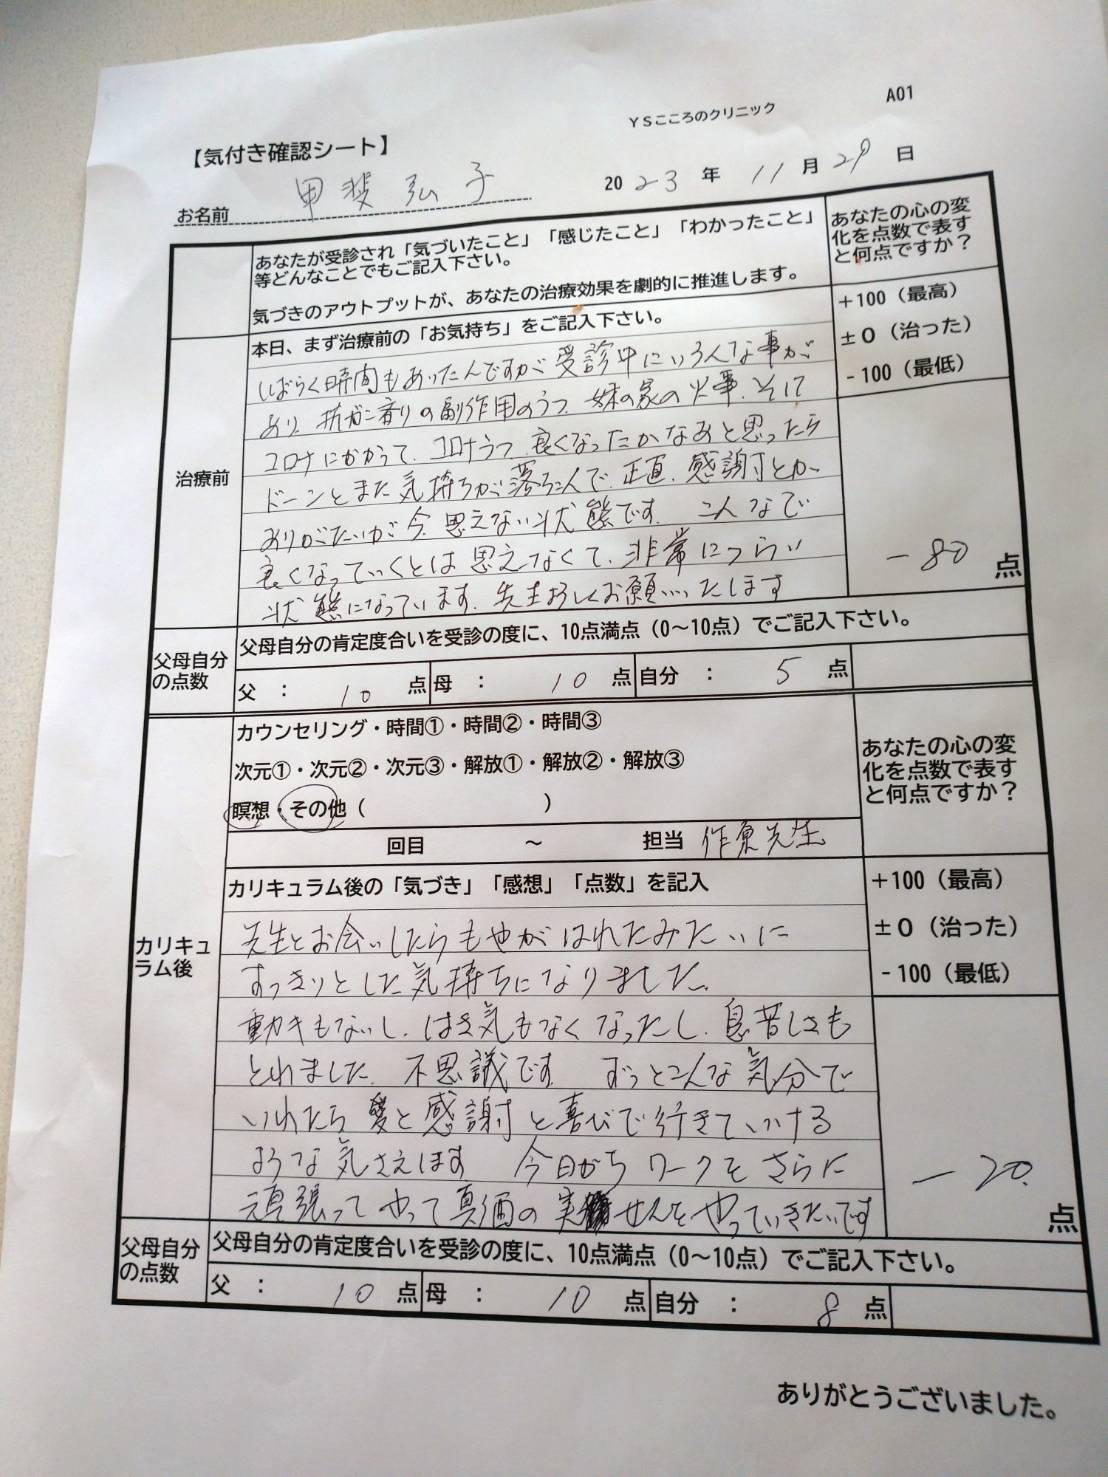 A01
YSこころのクリニック
【気付き確認シート】
お名前 甲斐弘子
2023年11月29日
あなたが受診され「気づいたこと」「感じたこと」「わかったこと」
等どんなことでもご記入下さい。
気づきのアウトプットが、あなたの治療効果を劇的に推進します。
あなたの心の変
化を点数で表す
と何点ですか？
治療前
本日、まず治療前の「お気持ち」をご記入下さい。
しばらく時間もあったんですが受診中にいろんな事が
あり、抗がん剤の副作用のうつ、妹の家の火事、そして
コロナにかかって、コロナうつ、良くなったかなあと思ったら
ドーンとまた気持ちが落ち込んで、正直、感謝とか
ありがたいが今、思えない状態です。 こんなで
良くなっていくとは思えなくて、非常につらい
状態になっています。先生よろしくお願いいたします
+100（最高）
±0（治った）
-100（最低）
-80点
父母自分
の点数
父母自分の肯定度合いを受診の度に、10点満点（0～10点）でご記入下さい。
父：10点 母：10点 自分：5点
カリキュ
ラム後
カウンセリング・時間①・時間②・時間③
次元①・次元②・次元③・解放①・解放②・解放③
瞑想・その他（ ）
回目 ～ 担当 作原先生
あなたの心の変
化を点数で表す
と何点ですか？
カリキュラム後の「気づき」「感想」「点数」を記入
先生とお会いしたらもやがはれたみたいに
すっきりとした気持ちになりました。
動キもないし、はき気もなくなったし、息苦しさも
とれました。不思議です。 ずっとこんな気分で
いれたら愛と感謝と喜びで行きていける
ような気さえします 今日からワークをさらに
頑張ってやって真価の実せんをやっていきたいです
+100（最高）
±0（治った）
-100（最低）
-20点
父母自分
の点数
父母自分の肯定度合いを受診の度に、10点満点（0～10点）でご記入下さい。
父：10点 母：10点 自分：8点
ありがとうございました。